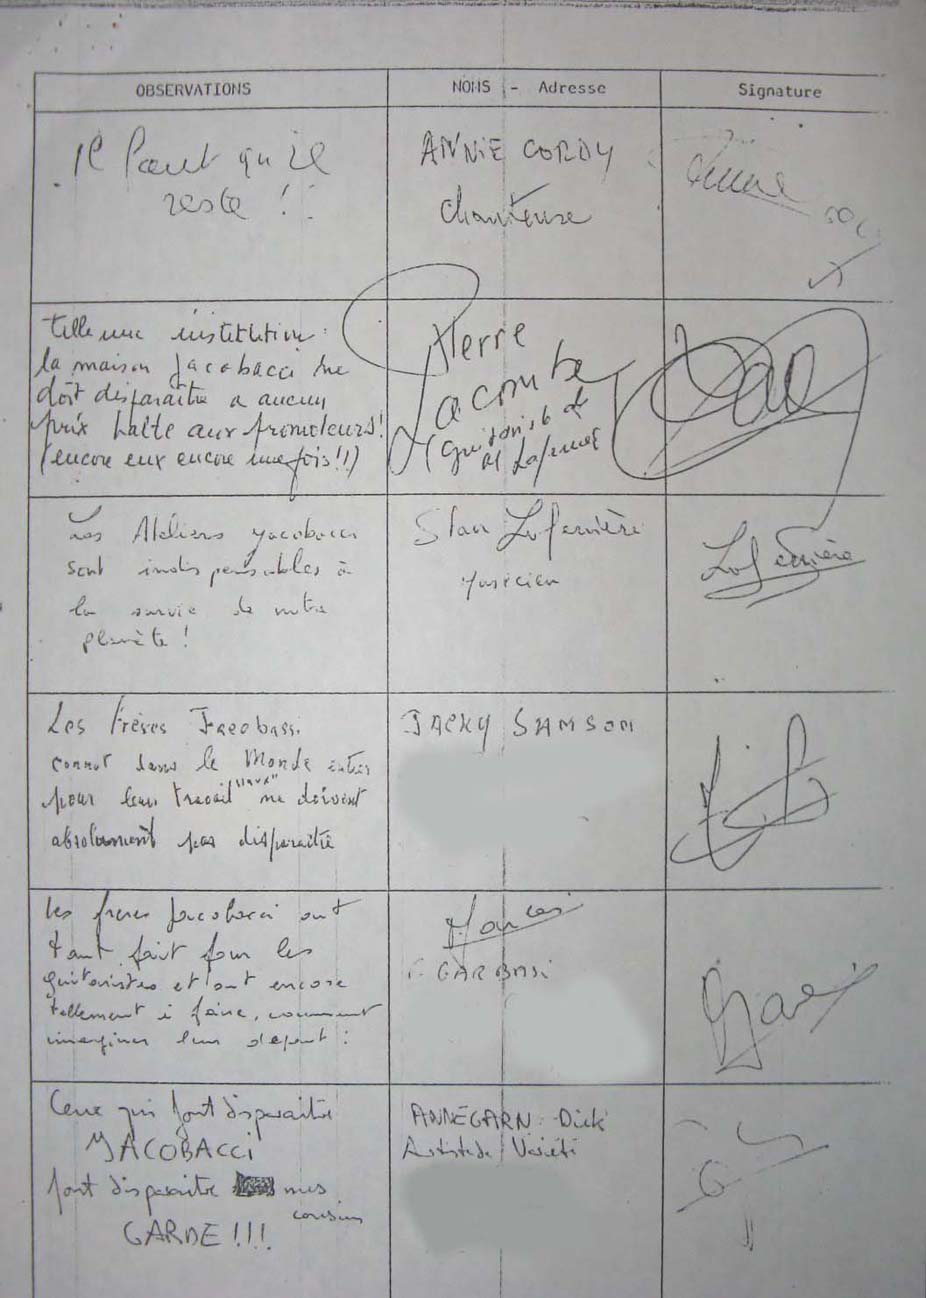 OBSERVATIONS
NOMS - Adresse
Signature
Il faut qu'il
reste !!
ANNIE CORDY
Chanteuse
Annie
Telle une institution
la maison Jacobacci ne
doit disparaître a aucun
prix halte aux promoteurs!
(encore eux encore une fois!!)
Pierre
Lacombe
(guitariste de
M Laforêt
Les Ateliers Jacobacci
sont indispensables à
la survie de notre
planète !
Stan Laferrière
Musicien
Laferrière
Les Frères Jacobacci
connut dans le Monde entier
pour leur travail ne doivent
absolument pas disparaitre
JACKY SAMSON
Les freres Jacobacci ont
tant fait pour les
guitaristes et ont encore
tellement à faire, comment
imaginer leur depart !
GAROBASI
Ceux qui font disparaitre
JACOBACCI
font disparaitre mes
cousin
GARDE !!!
ANNEGARN Dick
Artiste de Variété